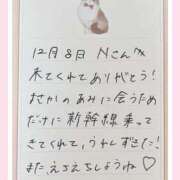 12月8日 Nさんへ
来てくれてありがとう!
わざわざあみに会うため
だけに新幹線乗って
きてくれて、うれしすぎた!!
またえちえちしようね♡